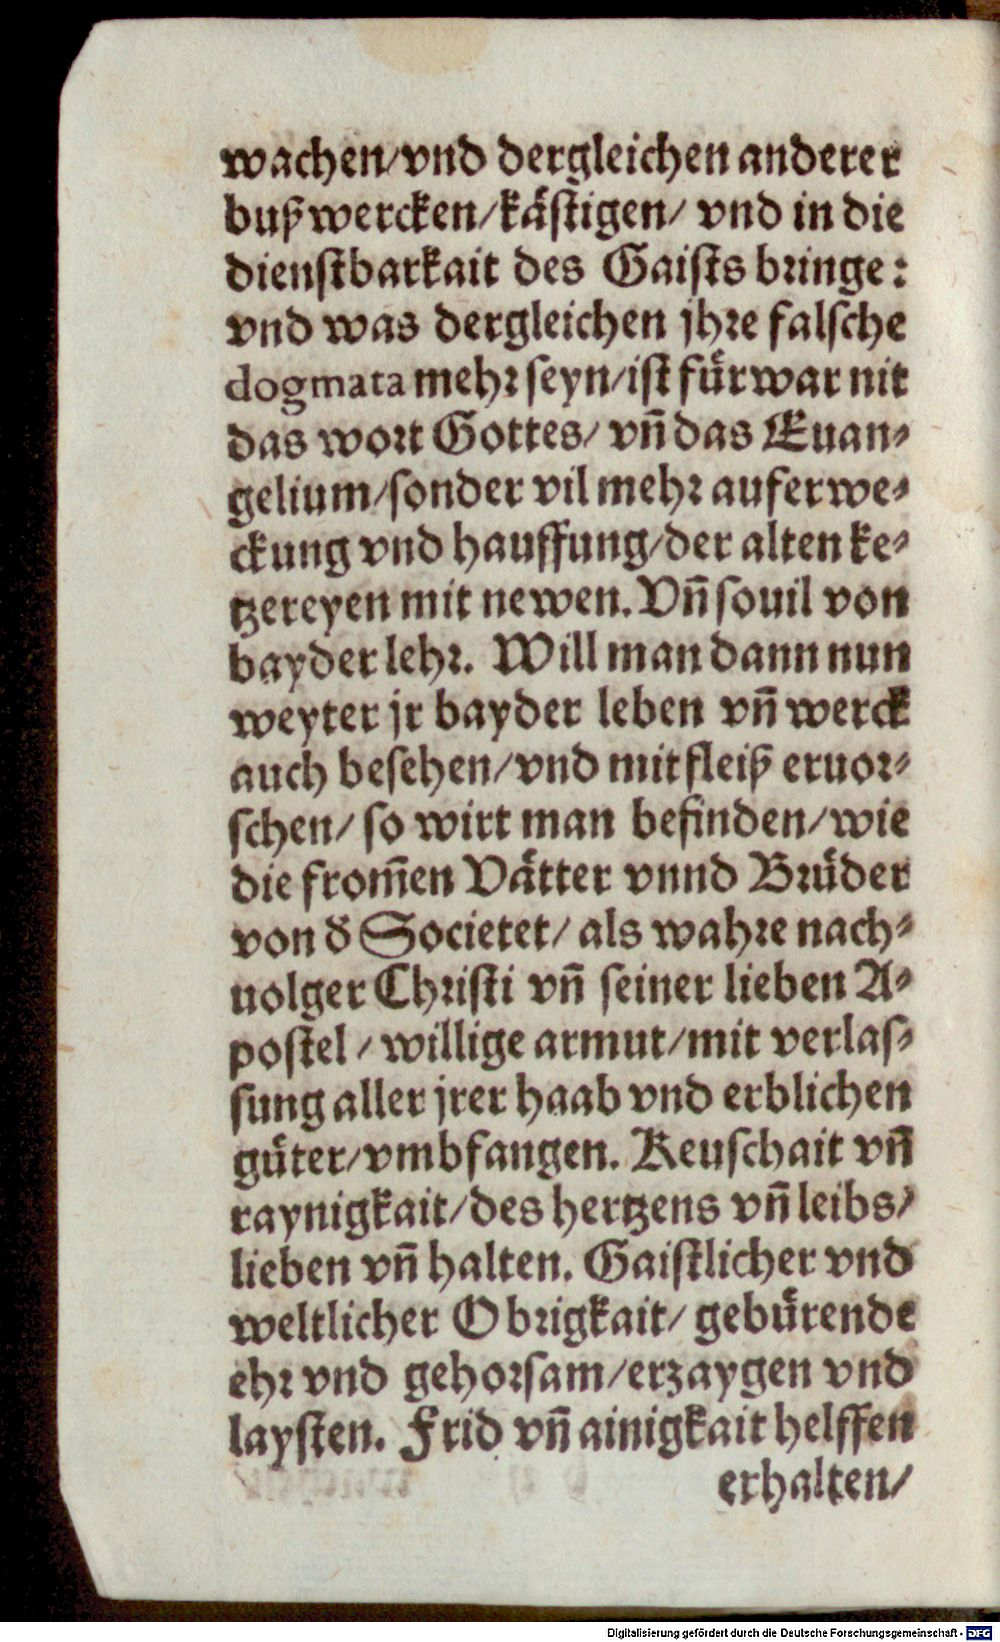 wachen/vnd dergleichen anderer
buß wercken/kästigen/ vnd in die
dienstbarkait des Gaists bringe:
vnd was dergleichen jhre falsche
dogmata mehr seyn/ist fürwar nit
das wort Gottes/ vn̄ das Euan-
gelium/sonder vil mehr auferwe-
ckung vnd hauffung/der alten ke-
tzereyen mit newen. Vn̄ souil von
bayder lehr. Will man dann nun
weyter jr bayder leben vn̄ werck
auch besehen/vnd mit fleiß eruor-
schen/ so wirt man befinden/wie
die from̄en Vätter vnnd Brüder
von ð Societet/ als wahre nach-
uolger Christi vn̄ seiner lieben A-
postel / willige armut/mit verlas-
sung aller jrer haab vnd erblichen
güter/vmbfangen. Keuschait vn̄
raynigkait/des hertzens vn̄ leibs/
lieben vn̄ halten. Gaistlicher vnd
weltlicher Obrigkait/ gebürende
ehr vnd gehorsam/erzaygen vnd
laysten. Frid vn̄ ainigkait helffen
erhalten/
Digitalisierung gefördert durch die Deutsche Forschungsgemeinschaft - DFG